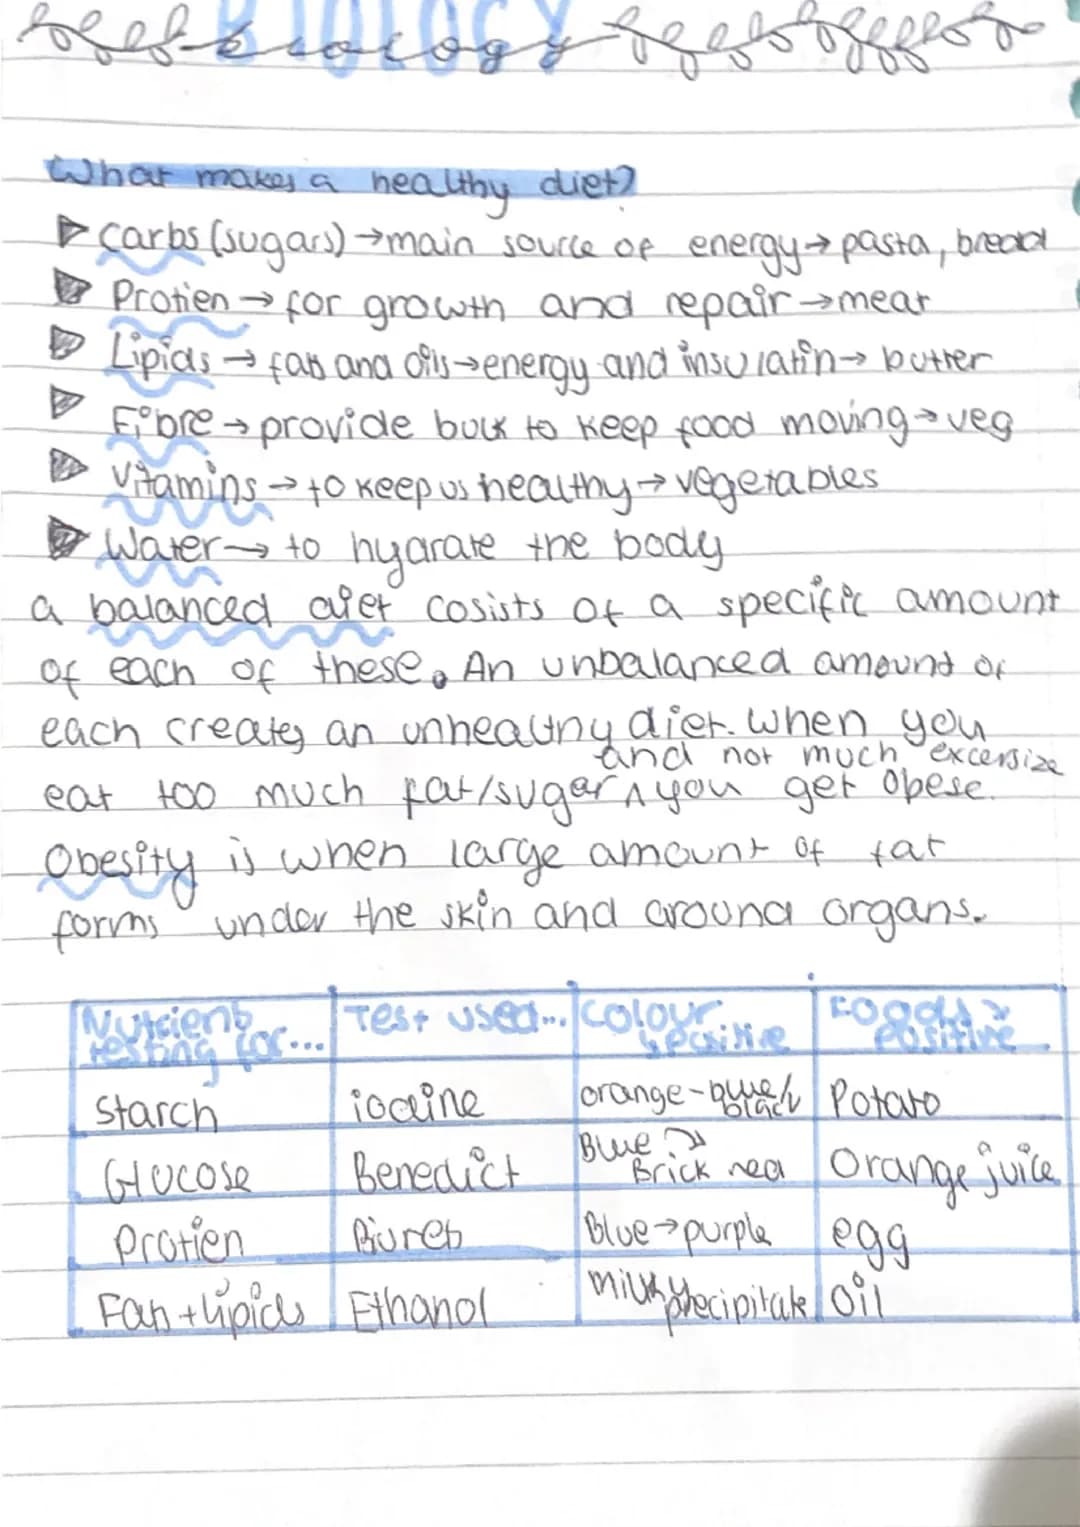 BIOLOGY
biology
What makes a healthy diet?
Carbs (sugars) → main source of energy → pasta, bread
Protien → for growth and repair → meat
Lipids → fats and oils → energy and insulatin → butter
Fibre → provide bulk to keep food moving → veg
Vitamins → to keep us healthy → vegetables
Water → to hydrate the body
a balanced diet cosists of a specific amount
of each of these. An unbalanced amount of
each creates an unhealthy diet. When you
and not much excersize
eat too much fat/sugar ^ you get obese.
Obesity is when large amount of fat
forms under the skin and around organs.
Nutrient testing for... | Test used... | Colour positive | Foods positive
Starch | iodine | orange-blue/black | Potato
Glucose | Benedict | Blue → Brick red | Orange juice
Protien | Biuret | Blue → purple | egg
Fats + lipids | Ethanol | milky precipitate | Oil